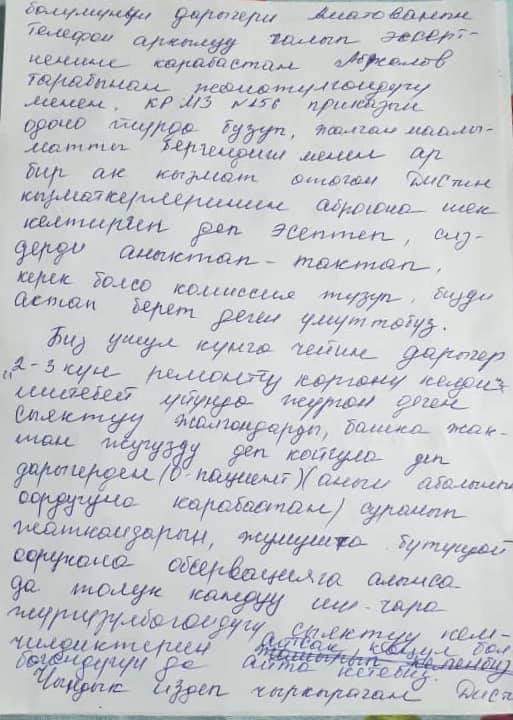 бөлүмүнүн дарыгери
телефон аркылуу чалып эскерт-
кенине карабастан
тарабынан жөнөтүлгөндүгү
менен, КР МЗ №156 приказын
одоно түрдө бузуп, жалган маалы-
матты бергендиги менен ар
бир ак кызмат өтөгөн ДИСТин
кызматкерлеринин аброюна шек
келтирген деп эсептеп, сиз-
дерди аныктап-тактап,
керек болсо комиссия түзүп, бизди
актап берет деген үмүттөбүз.
Биз ушул күнгө чейин дарыгер
"2-3 күн ремонтту көргөнү келди"
иштебей үйүндө жүргөн деген
сыяктуу жалгандарды, башка жак-
тан жугузду деп койгула деп
дарыгерден (0-пациент) (анын абалынын
оордугуна карабастан) суранып
жатканзарын, жумушка бүтүндөй
оорукана обсервацияга алынса
да толук кандуу иш-чара
жүргүзүлбөгөндүгү сыяктуу кем-
чилдиктерин айтпак көңүл бол-
богондугун да айта кетебиз.
Чындык издеп чыркыраган ДИСТ